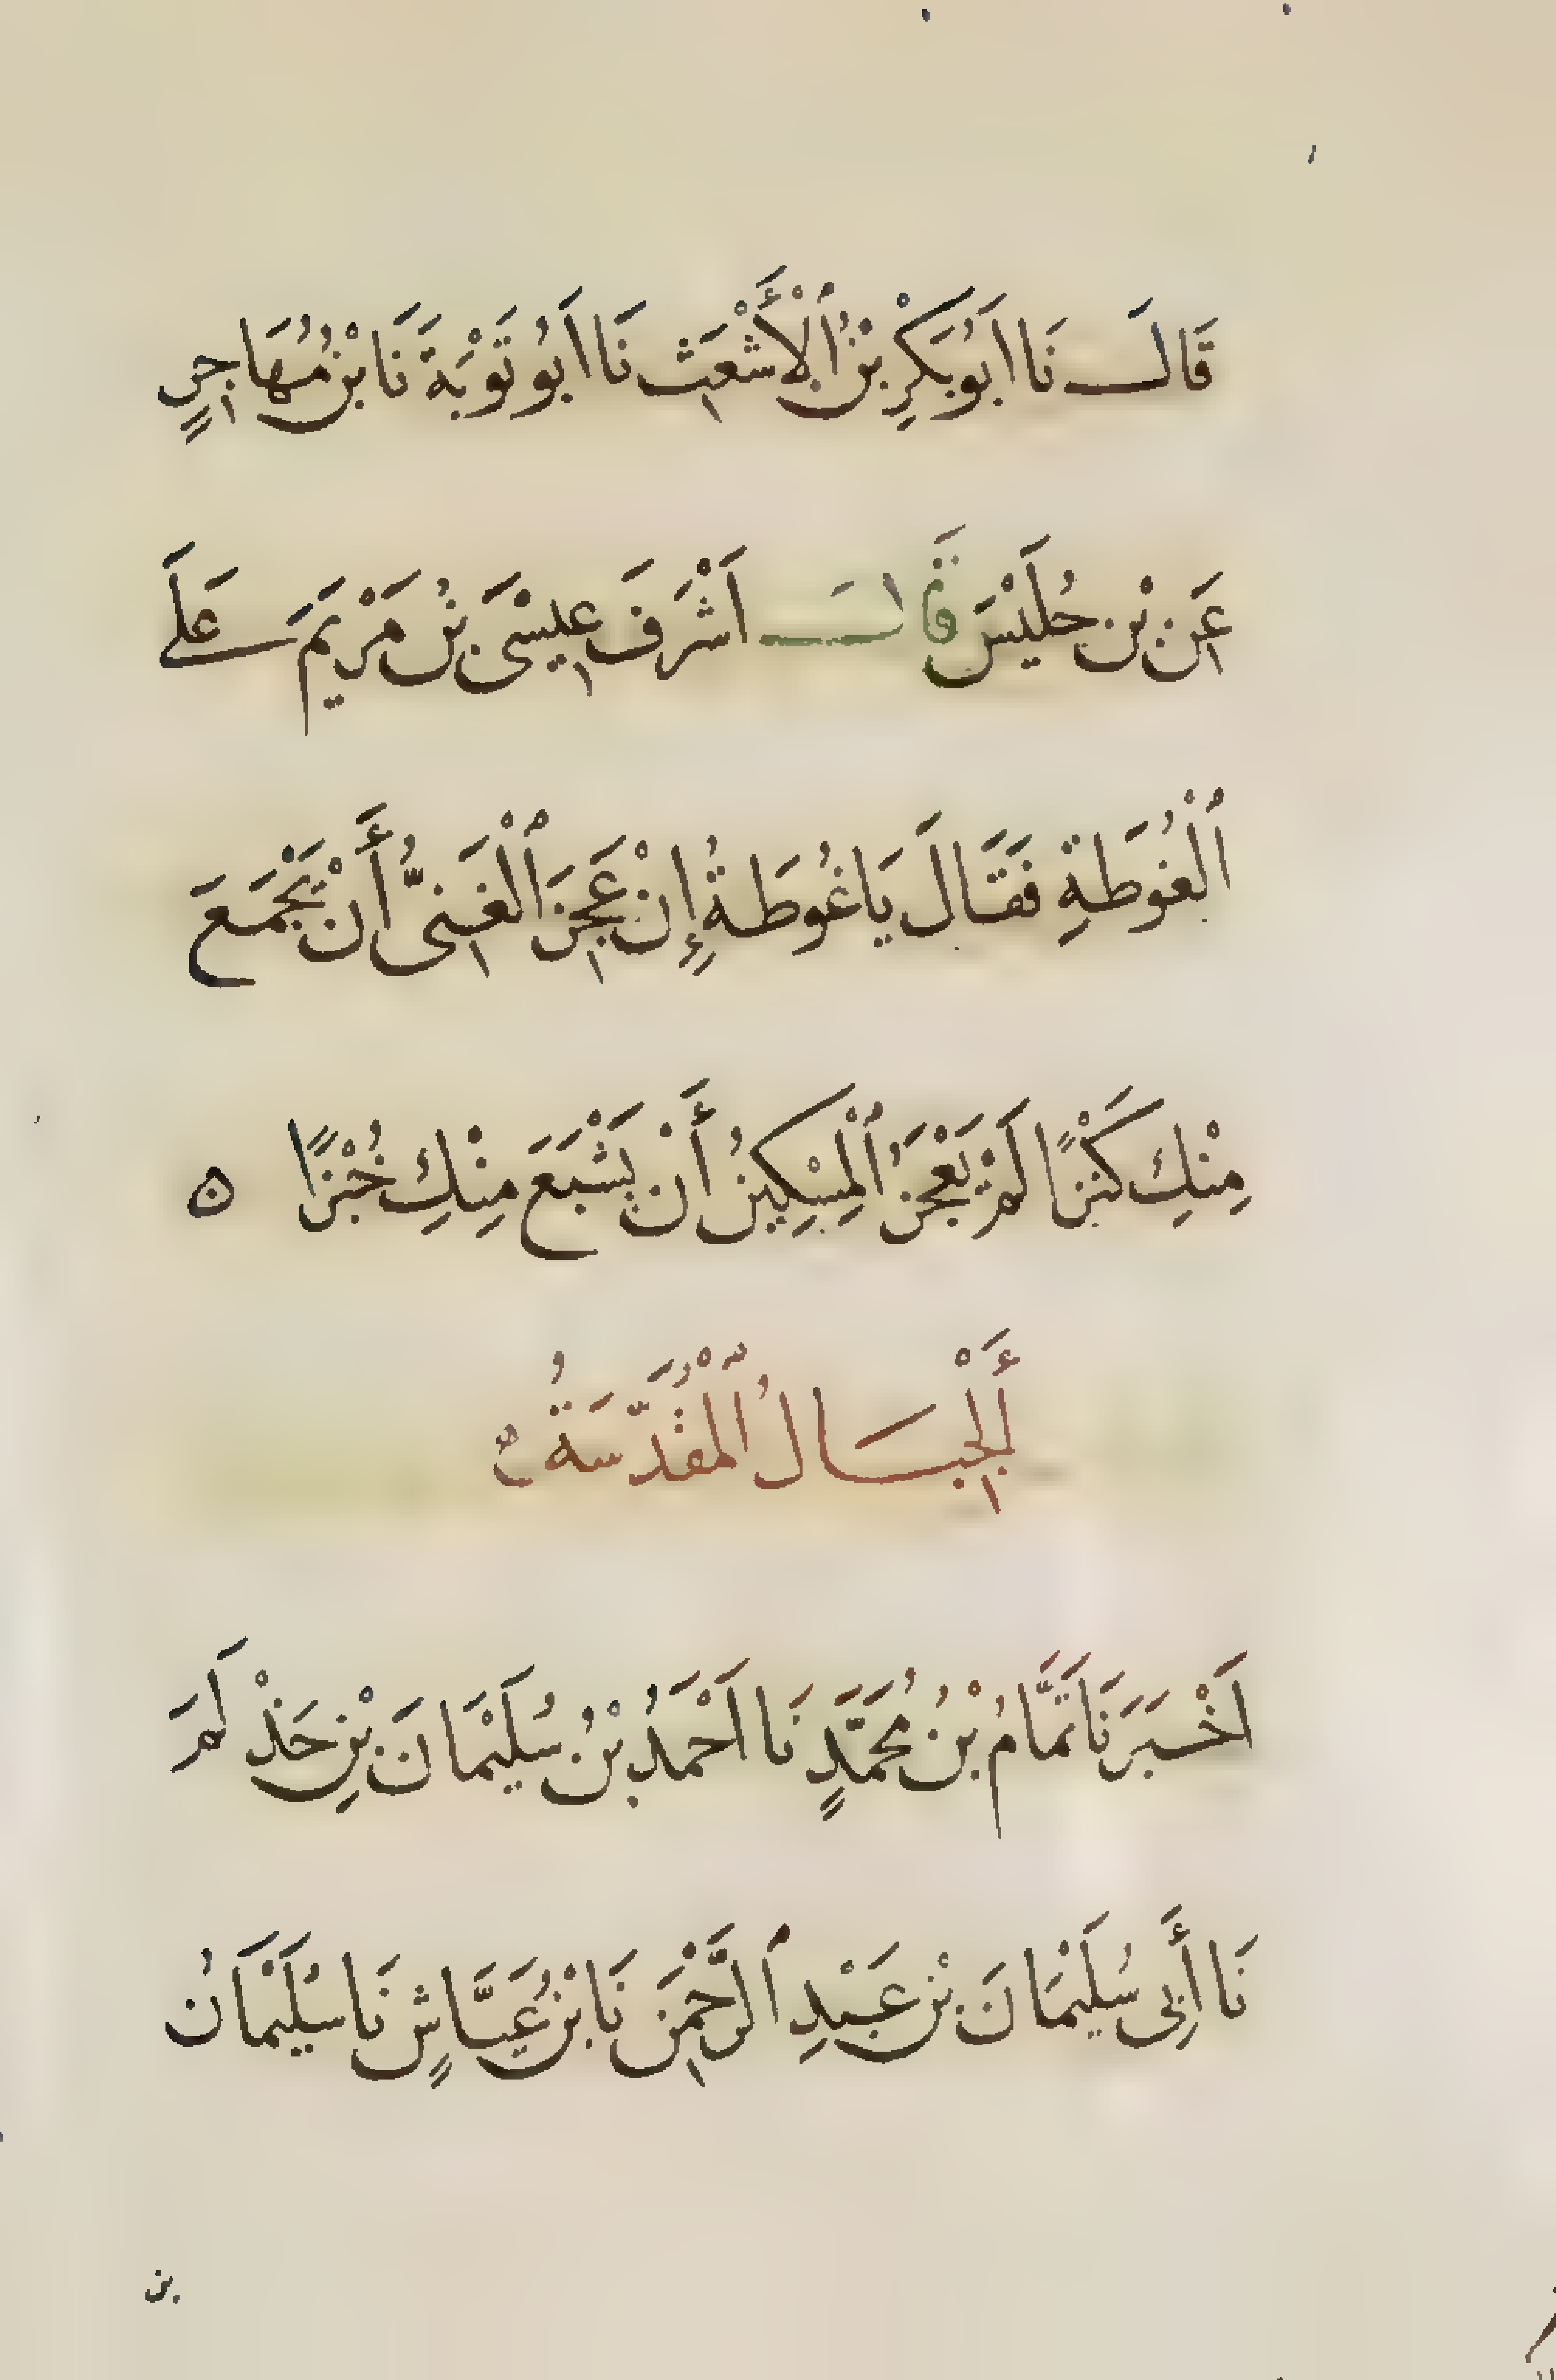 قَالَ نَا اَبُو بَكْرِ بْنُ ٱلْأَشْعَث نَا اَبُو تَوْبَةَ نَا بْنُ مُهَاجِرٍ
عَن بْن حُلَيْسَ قَالَ اَشْرَفَ عِيسْىَ بْنُ مَرْيَمَ عَلَى
ٱلْغُوطَةِ فَقَالَ يَا غُوطَةُ إِنْ عَجِزَ ٱلْغَنِىُّ أَنْ يَجْمَعَ
مِنْكِ كَنْزًا لَمْ يَعْجَزُ ٱلْمِسْكِينُ أَنْ يَشْبَعَ مِنْكِ خُبْزًا ٥
أَلْجِبَالُ ٱلْمُقَدَّسَةُ
اَخْبَرَنَا تَمَّامُ بْنُ مُحَمَّدٍ نَا اَحْمَدُ بْنُ سُلَيْمَانَ بْنِ حَذْلَمَ
نَا أَبِى سُلَيْمَانَ بْن عَبْدِ ٱلرَّحْمَن نَا بْنُ عَيَّاشٍ نَا سُلَيْمَانُ
بن